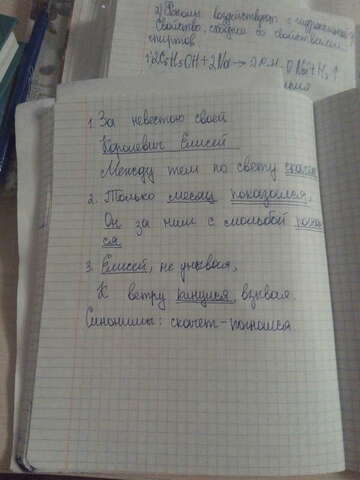 2) Фенолы
Свойство, сходное со свойствами
спиртов
1) 2C₆H₅OH + 2Na →
1. За невестою своей
Королевич Елисей
Между тем по свету скачет
2. Только месяц показался,
Он за ним с мольбой погнался
ся.
3. Елисей, не унывая,
К ветру кинулся, взывая.
Синонимы: скачет - погнался.